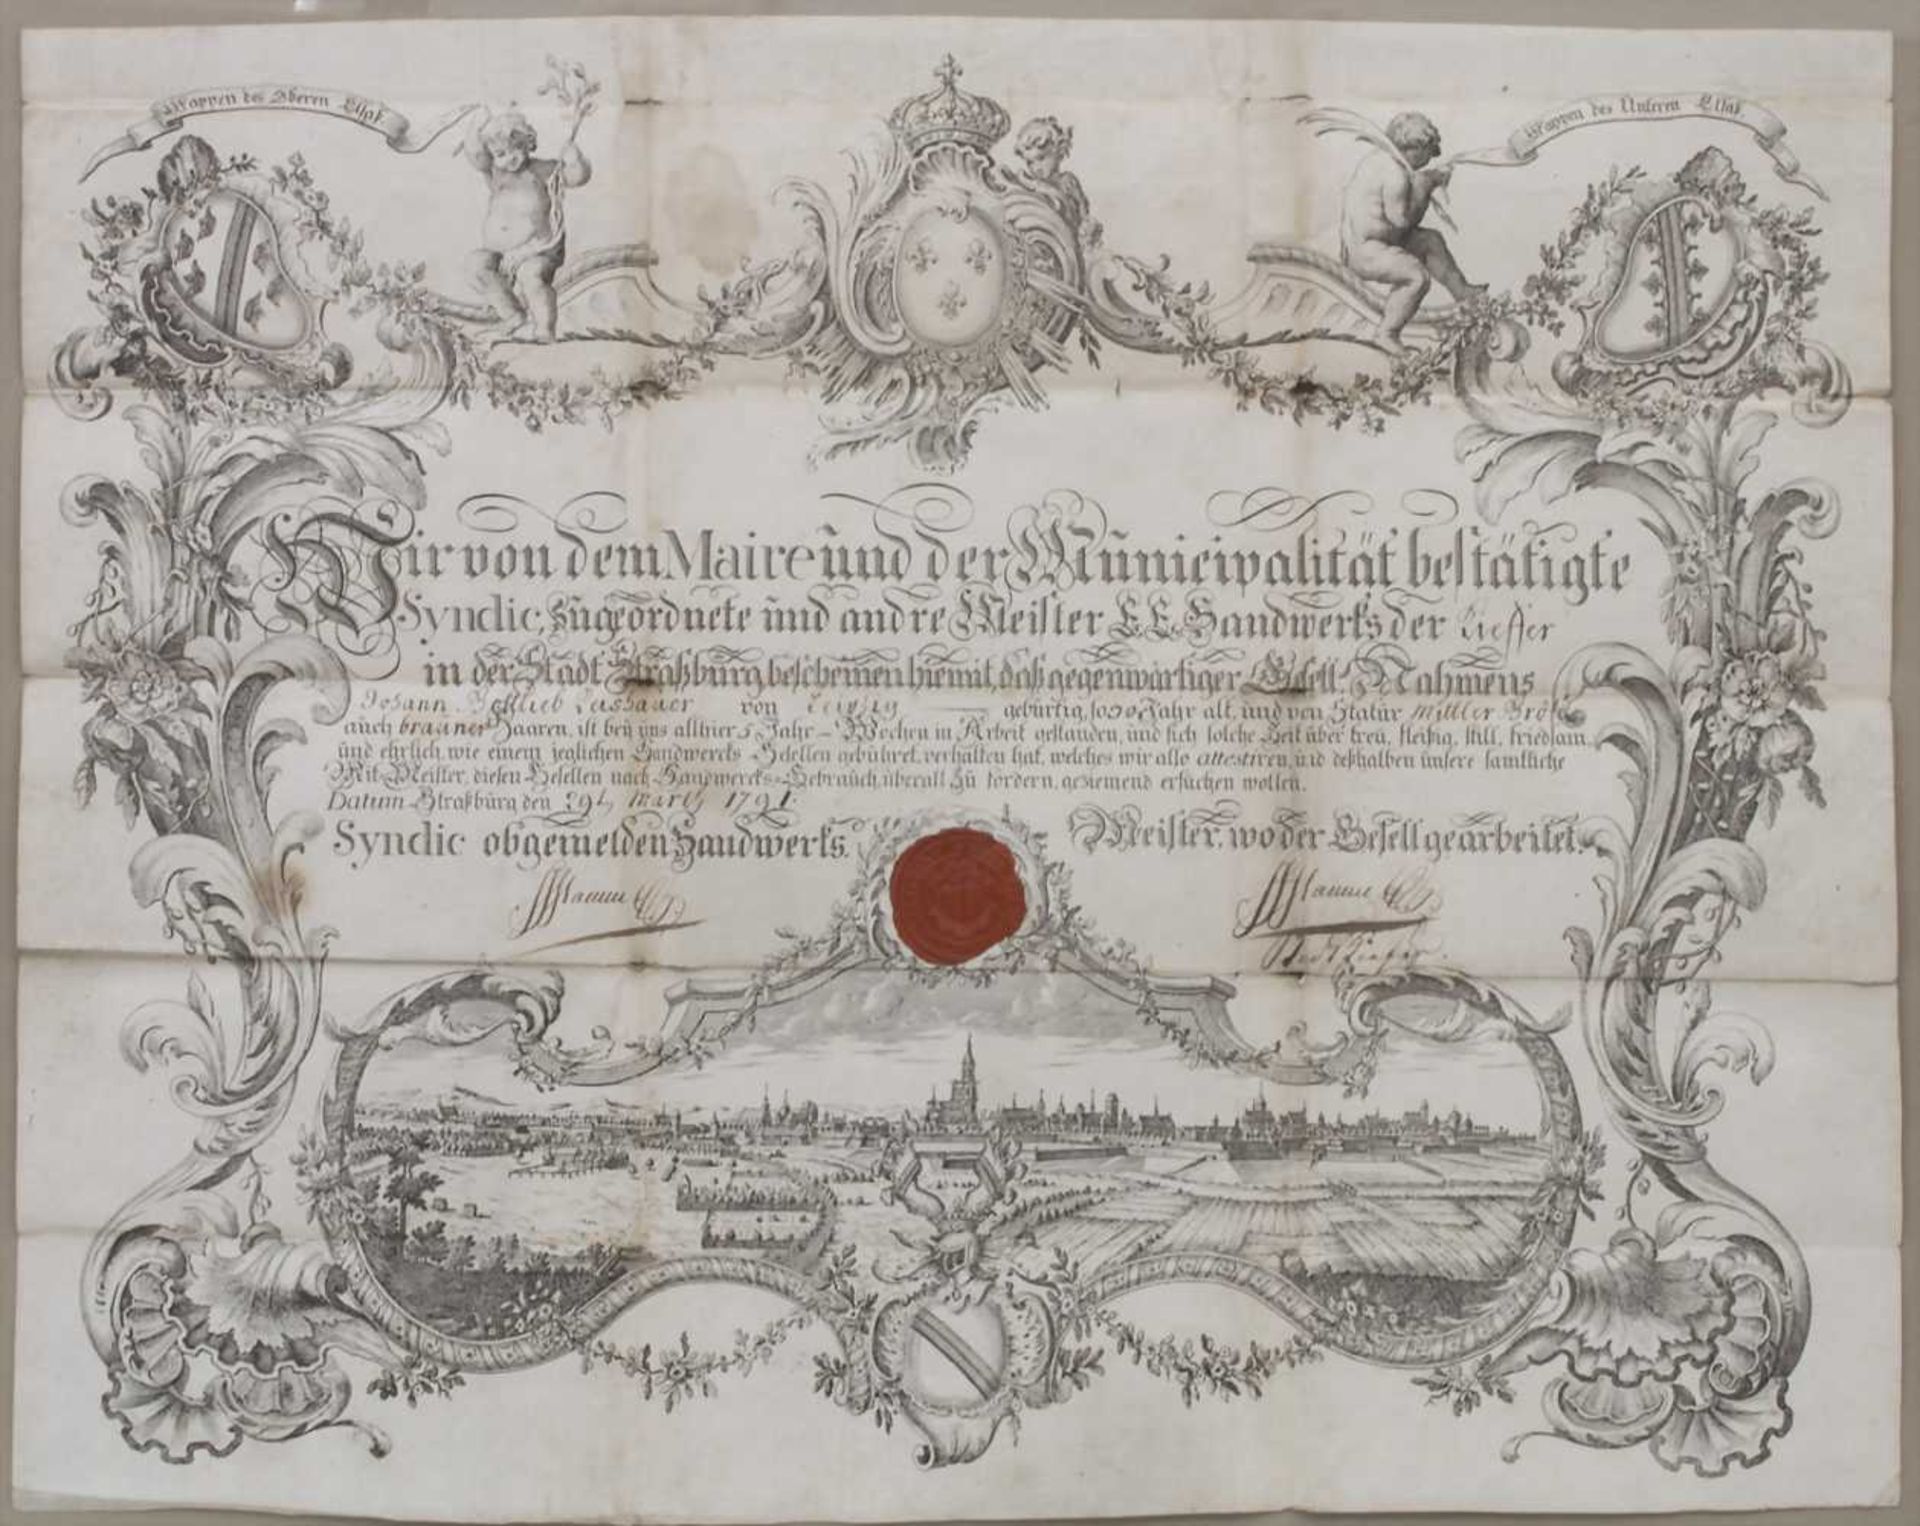 Wappen des Oberen Elsaß
Wappen des Unteren Elsaß.
Wir von dem Maire und der Municipalität bestätigte
Syndic, zugeordnete und andre Meister E. E. Handwerks der Kieffer
in der Stadt Straßburg bescheinen hiemit, daß gegenwärtiger Gesell, Nahmens
Johann Gottlieb von Leipzig gebürtig, so 30 Jahr alt, und von Statur mittler Größe
auch brauner Haaren, ist bey uns allhier 5 Jahr – Wochen in Arbeit gestanden, und sich solche Zeit über treu, fleißig, still, friedsam
und ehrlich, wie einem jeglichen Handwercks-Gesellen gebühret, verhalten hat, welches wir also attestiren, und deßhalben unsere samtliche
Mit-Meister, diesen Gesellen nach Handwercks-Gebrauch, überall zu fördern, geziemend ersuchen wollen.
Datum Straßburg den 29t Martz 1791.
Syndic obgemelden Handwerks.
Meister, wo der Gesell gearbeitet.